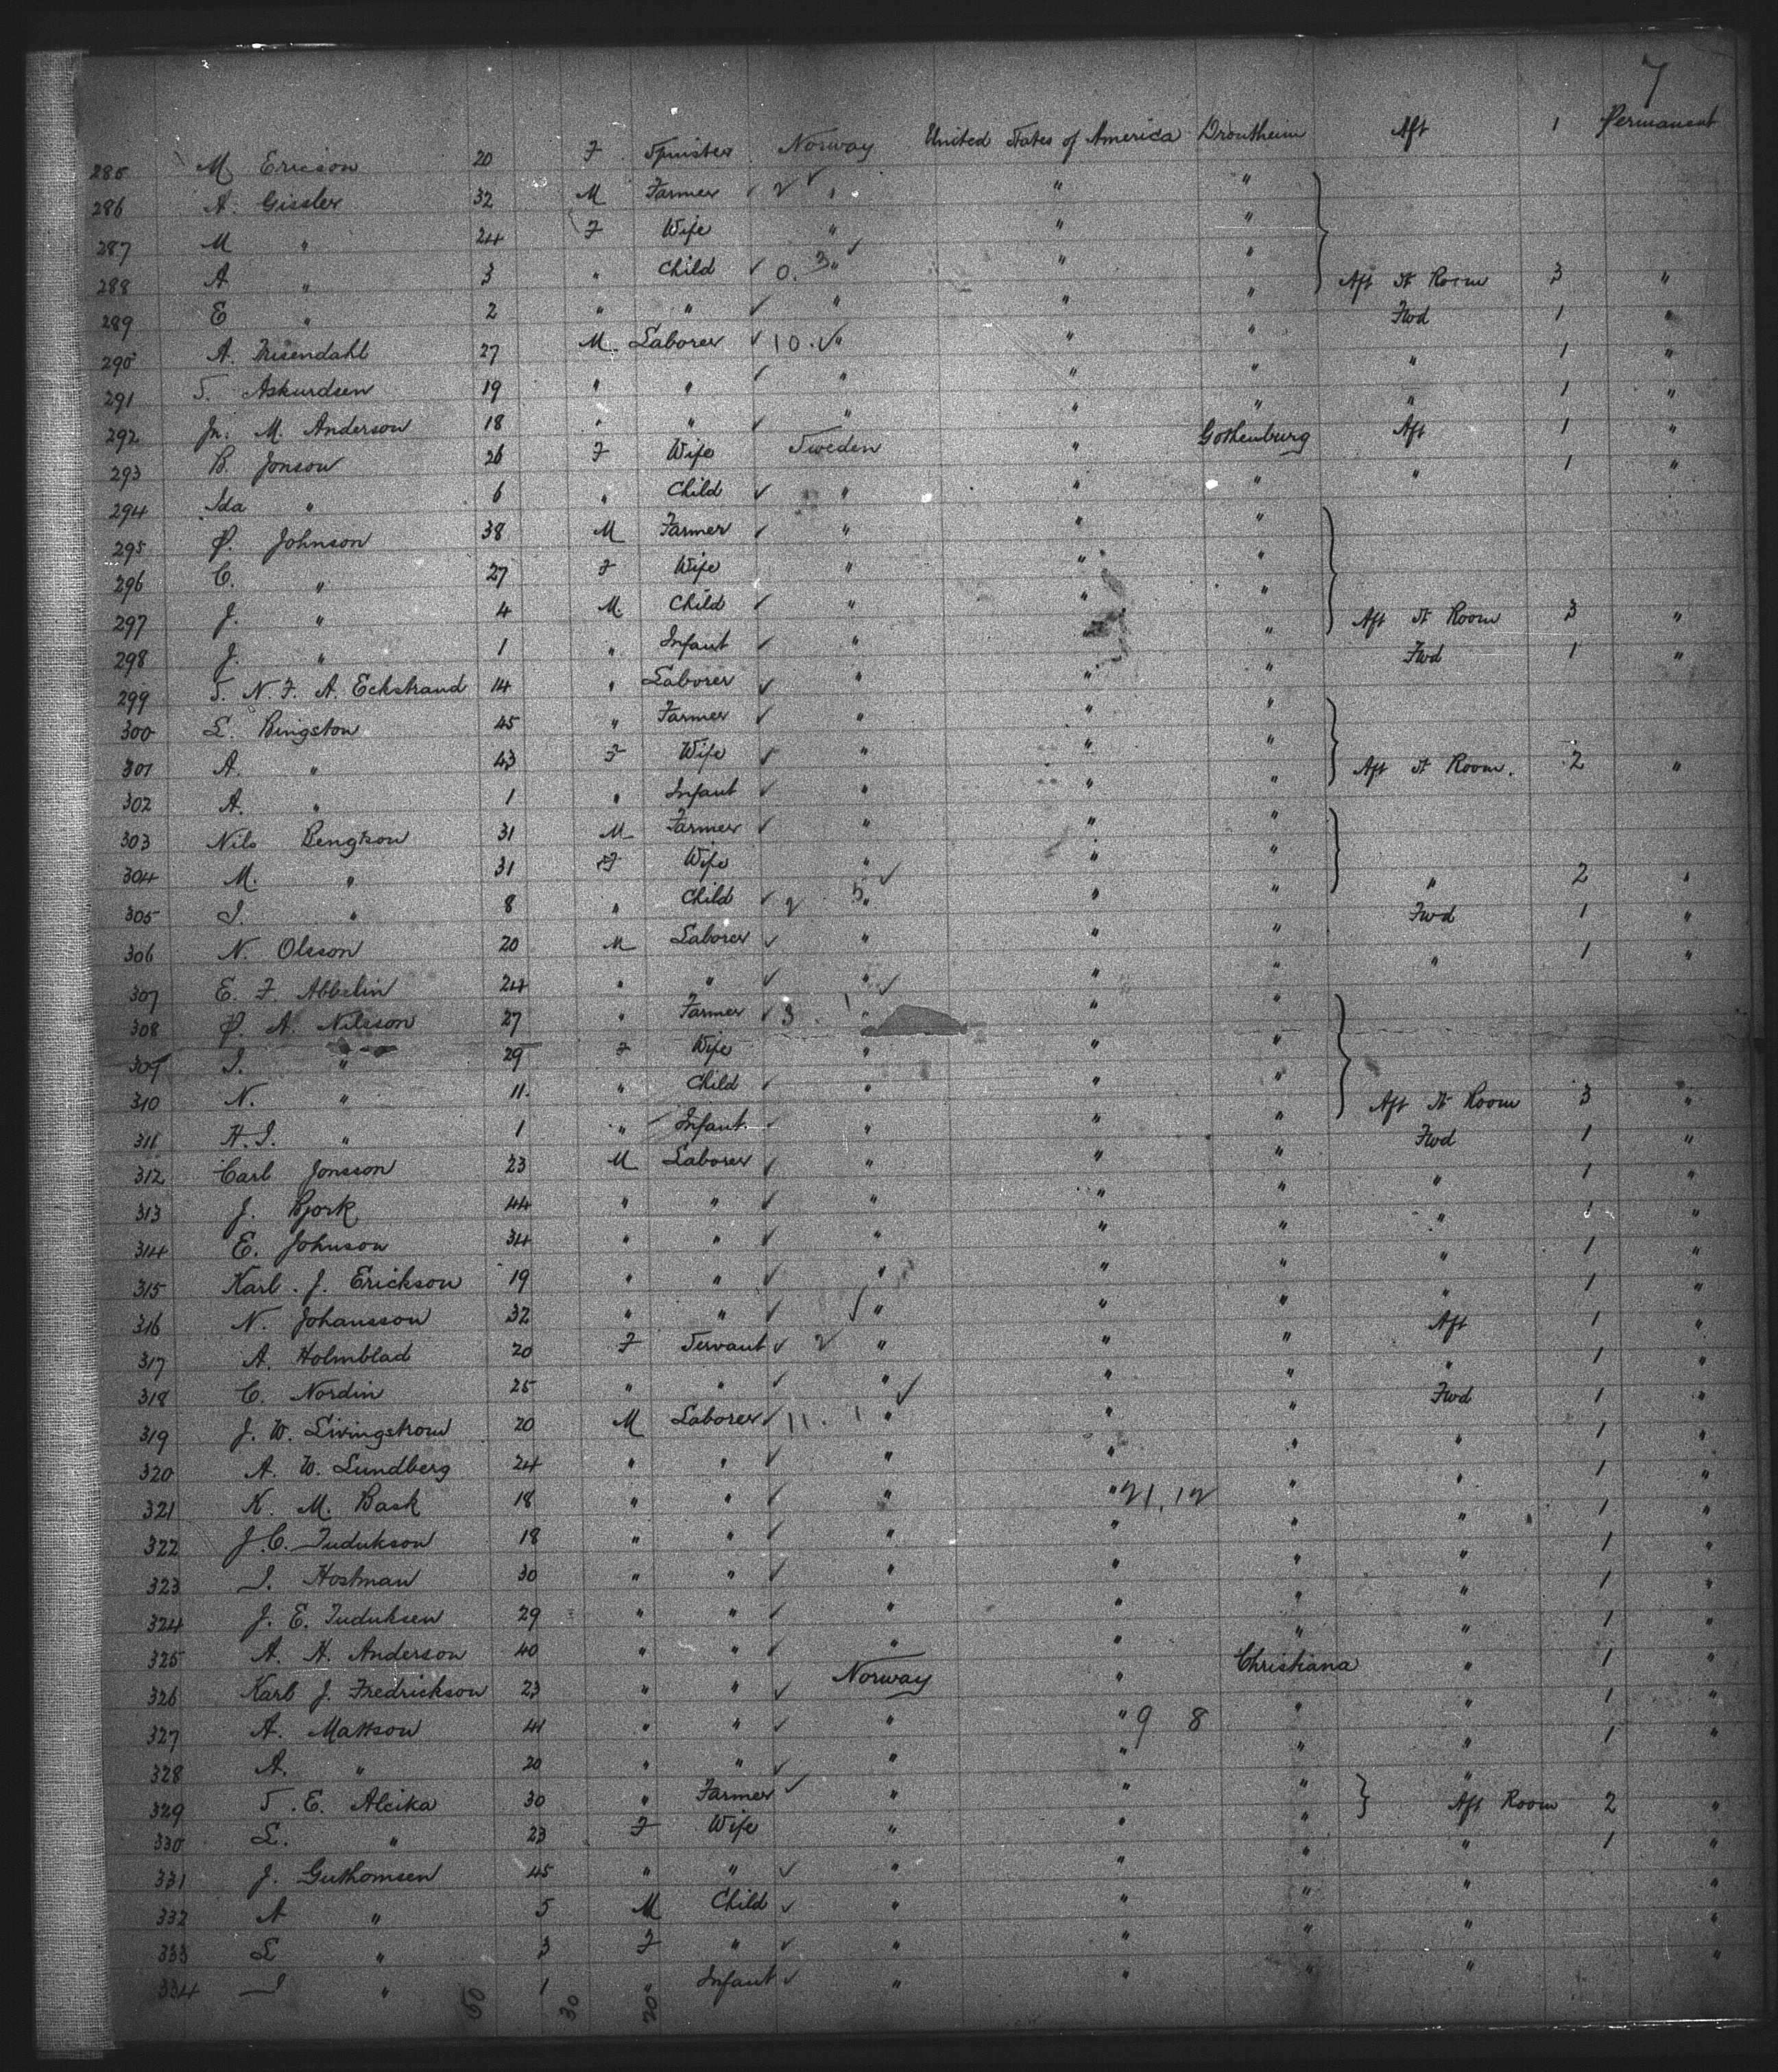 7
285 M Ericson 20 F Spinster Norway United States of America Drontheim Aft 1 Permanent
286 A. Gissler 32 M Farmer ✓ 2 ✓ " " "
287 M " 24 F Wife " " "
288 A " 3 " Child ✓ 0. 3 ✓ " " " Aft St Room 3 "
289 E " 2 " " ✓ " " " Fwd 1 "
290 A. Frisendahl 27 M. Laborer ✓ 10. ✓ " " " " 1 "
291 T. Askurdsen 19 " " ✓ " " " " 1 "
292 Jn. M. Anderson 18 " " ✓ " " " Aft 1 "
293 B. Jonson 26 F Wife Sweden " Gothenburg " 1 "
294 Ida " 6 " Child ✓ " " "
295 P. Johnson 38 M Farmer ✓ " " "
296 C. " 27 F Wife " " "
297 J. " 4 M. Child ✓ " " " Aft St Room 3 "
298 J. " 1 " Infant ✓ " " " Fwd 1 "
299 T. N. F. A. Eckstrand 14 " Laborer ✓ " " "
300 L. Bingston 45 " Farmer ✓ " " "
301 A. " 43 F Wife ✓ " " " Aft St Room. 2 "
302 A. " 1 " Infant ✓ " " "
303 Nils Bengtson 31 M Farmer ✓ " " "
304 M. " 31 F Wife " ✓ " " " 2 "
305 I. " 8 " Child ✓ 2 5 " " " Fwd 1 "
306 N. Olsson 20 M Laborer ✓ " " " " 1 "
307 E. F. Abbelin 24 " " ✓ " ✓ " "
308 P. A. Nilsson 27 " Farmer ✓ 3. 1 " " "
309 I. " 29 F Wife " " "
310 N. " 11. " Child ✓ " " " Aft St Room 3 "
311 H. I. " 1 " Infant ✓ " " " Fwd 1 "
312 Carl Jonsson 23 M Laborer ✓ " " " " 1 "
313 J. Bjork 44 " " ✓ " " " " 1 "
314 E. Johnson 34 " " ✓ " " " " 1 "
315 Karl. J. Erickson 19 " " ✓ " " " " 1 "
316 N. Johansson 32 " " ✓ " " " Aft 1 "
317 A. Holmblad 20 F Servant ✓ 2 " " " " 1 "
318 C. Nordin 25 " " ✓ " ✓ " " Fwd 1 "
319 J. W. Livingstrom 20 M Laborer ✓ 11. 1 " " " " 1 "
320 A. W. Lundberg 24 " " ✓ " " " " 1 "
321 K. M. Bask 18 " " ✓ " " 21.12 " " 1 "
322 J. C. 18 " " ✓ " " " " 1 "
323 I. Hostman 30 " " ✓ " " " " 1 "
324 J. E. 29 " " ✓ " " " " 1 "
325 A. H. Anderson 40 " " ✓ " " " " 1 "
326 Karl J. Fredrickson 23 " " ✓ Norway " Christiana " 1 "
327 A. Mattson 41 " " ✓ " " 9 8 " " 1 "
328 A. " 20 " " ✓ " " " "
329 T. E. Alcika 30 " Farmer ✓ " " " Aft Room 2 "
330 L. " 23 F Wife " " " " 1 "
331 J. Guthomsen 45 " " ✓ " " " " "
332 A " 5 M Child ✓ " " " " "
333 L " 3 F " ✓ " " " " "
334 I " 1 " Infant ✓ " " "
50 30 20